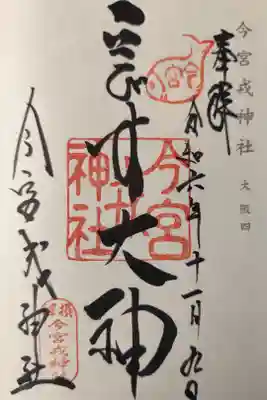 今宮戎神社 大阪四
奉拝
令和六年十一月九日
大神
今宮戎神社
今宮戎神社
今宮戎神社